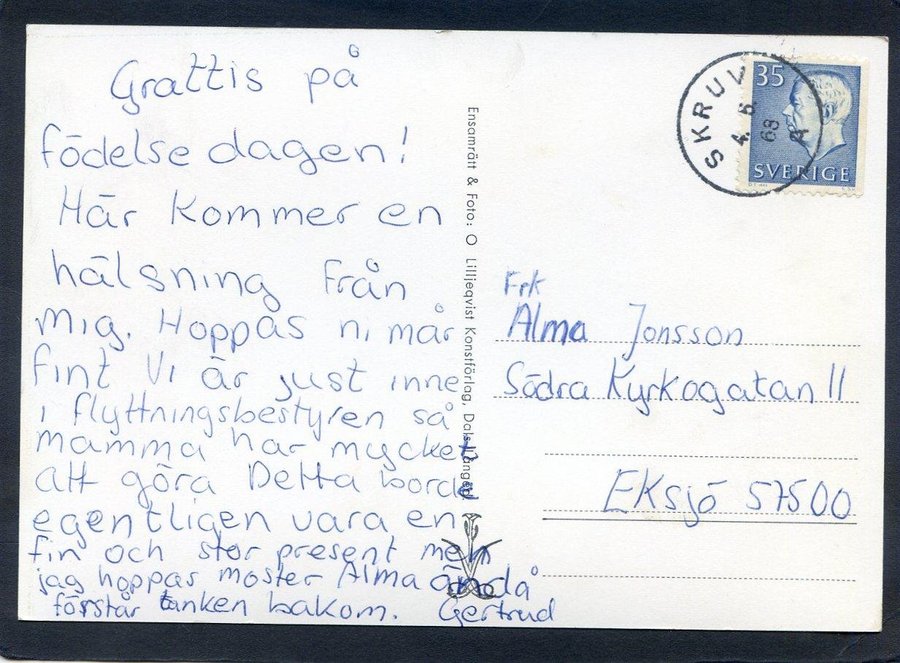 Grattis på
födelse dagen!
Här kommer en
hälsning från
mig. Hoppas ni mår
fint Vi är just inne
i flyttningsbestyren så
mamma har mycket
att göra Detta borde
egentligen vara en
fin och stor present men
jag hoppas moster Alma ändå
förstår tanken bakom. Gertrud
Ensamrätt & Foto: O Lilljeqvist Konstförlag, Dals Långed
SKRUV
4. 6.
68
A
35
SVERIGE
Frk
Alma Jonsson
Södra Kyrkogatan 11
Eksjö 57500